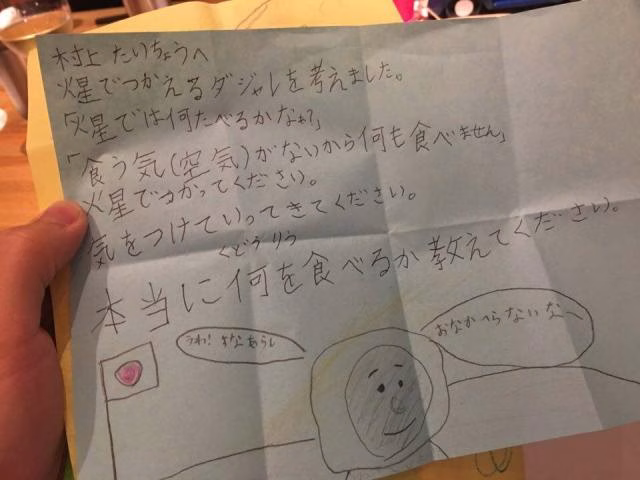 村上 たいちょうへ
火星でつかえるダジャレを考えました。
「火星では何たべるかなぁ?」
「食う気(空気)がないから何も食べません」
火星でつかってください。
気をつけていってきてください。
くどうりう
本当に何を食べるか教えてください。
うわ! すなあらし
おなかへらないなへ